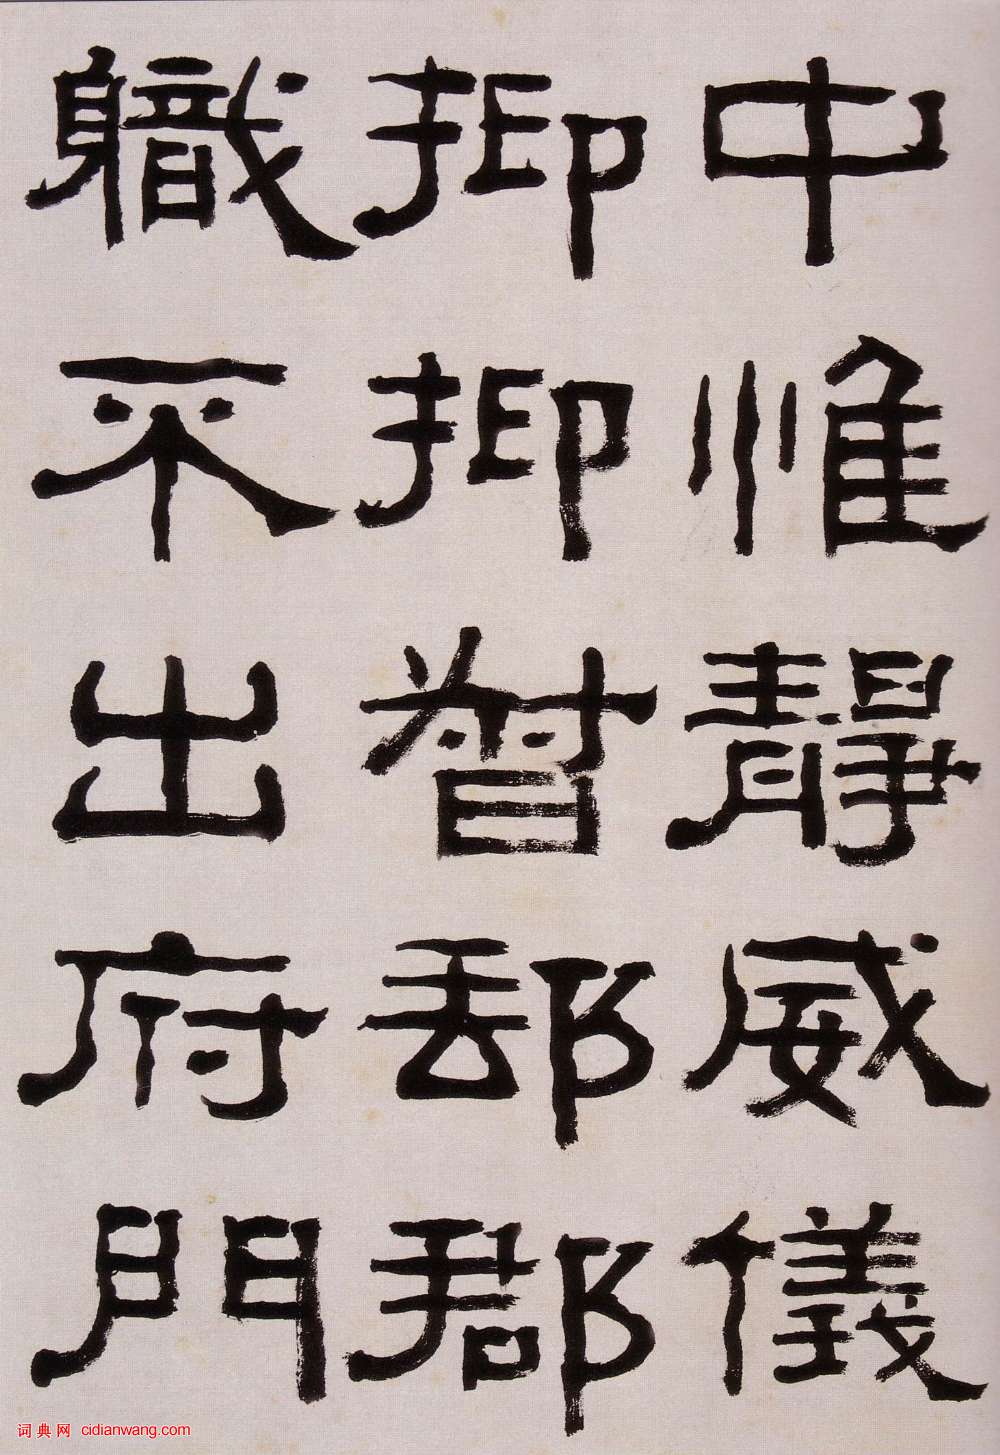 中惟靜威儀
抑抑督郵郡
職不出府門
词典网 cidianwang.com